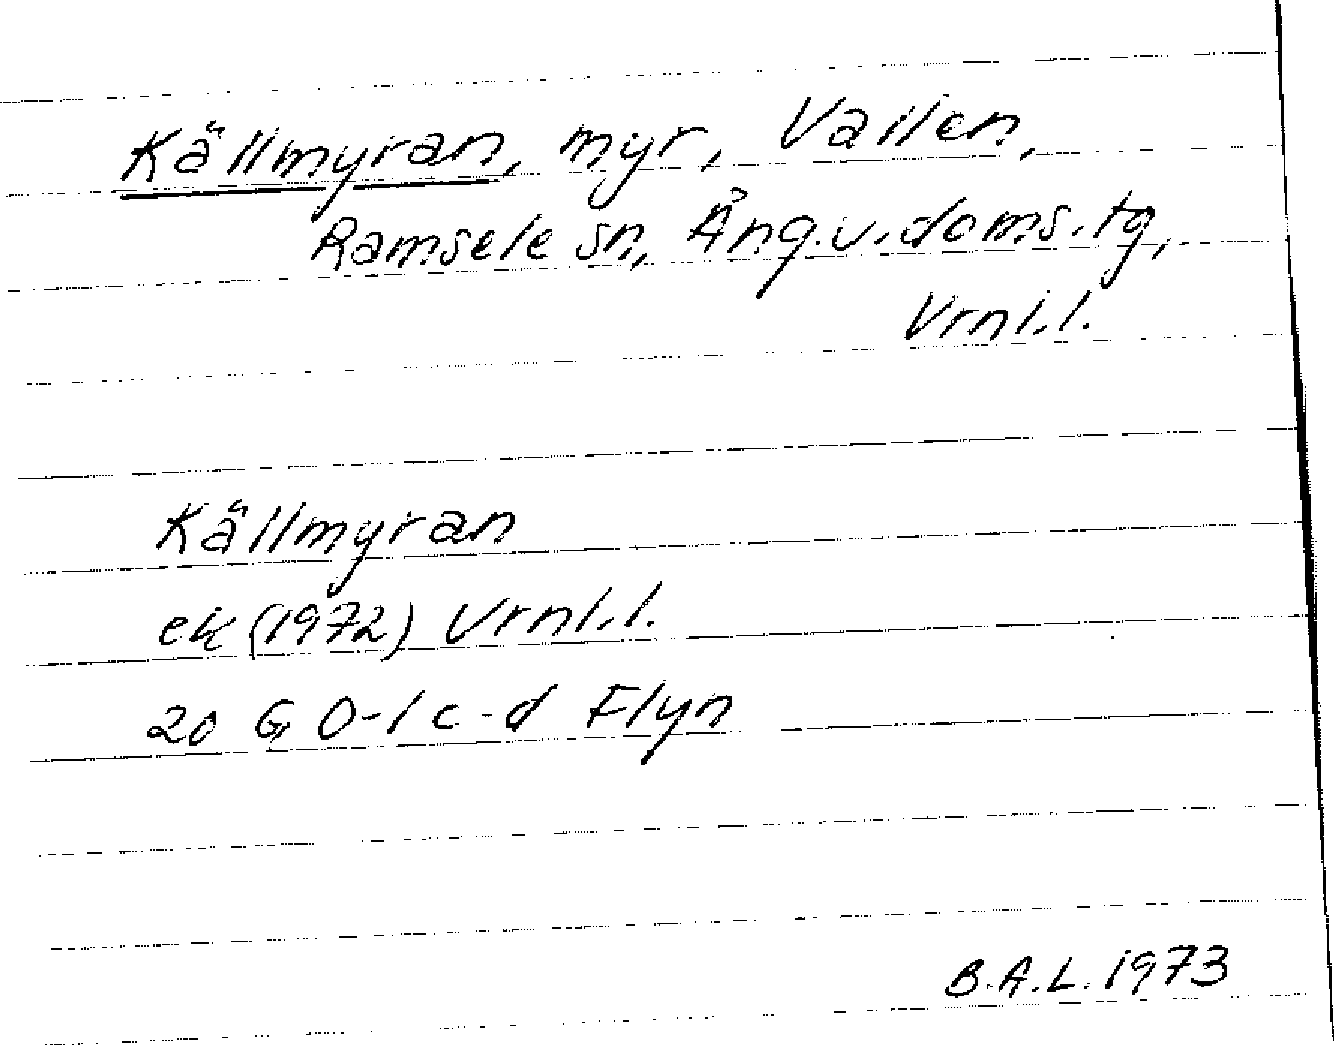 Källmyran, myr, Vallen,
Ramsele sn, Ång.v.doms.tg,
Vrnl.l.
Källmyran
ek (1972) Vrnl.l.
20 G 0-1 c-d Flyn
B.A.L. 1973